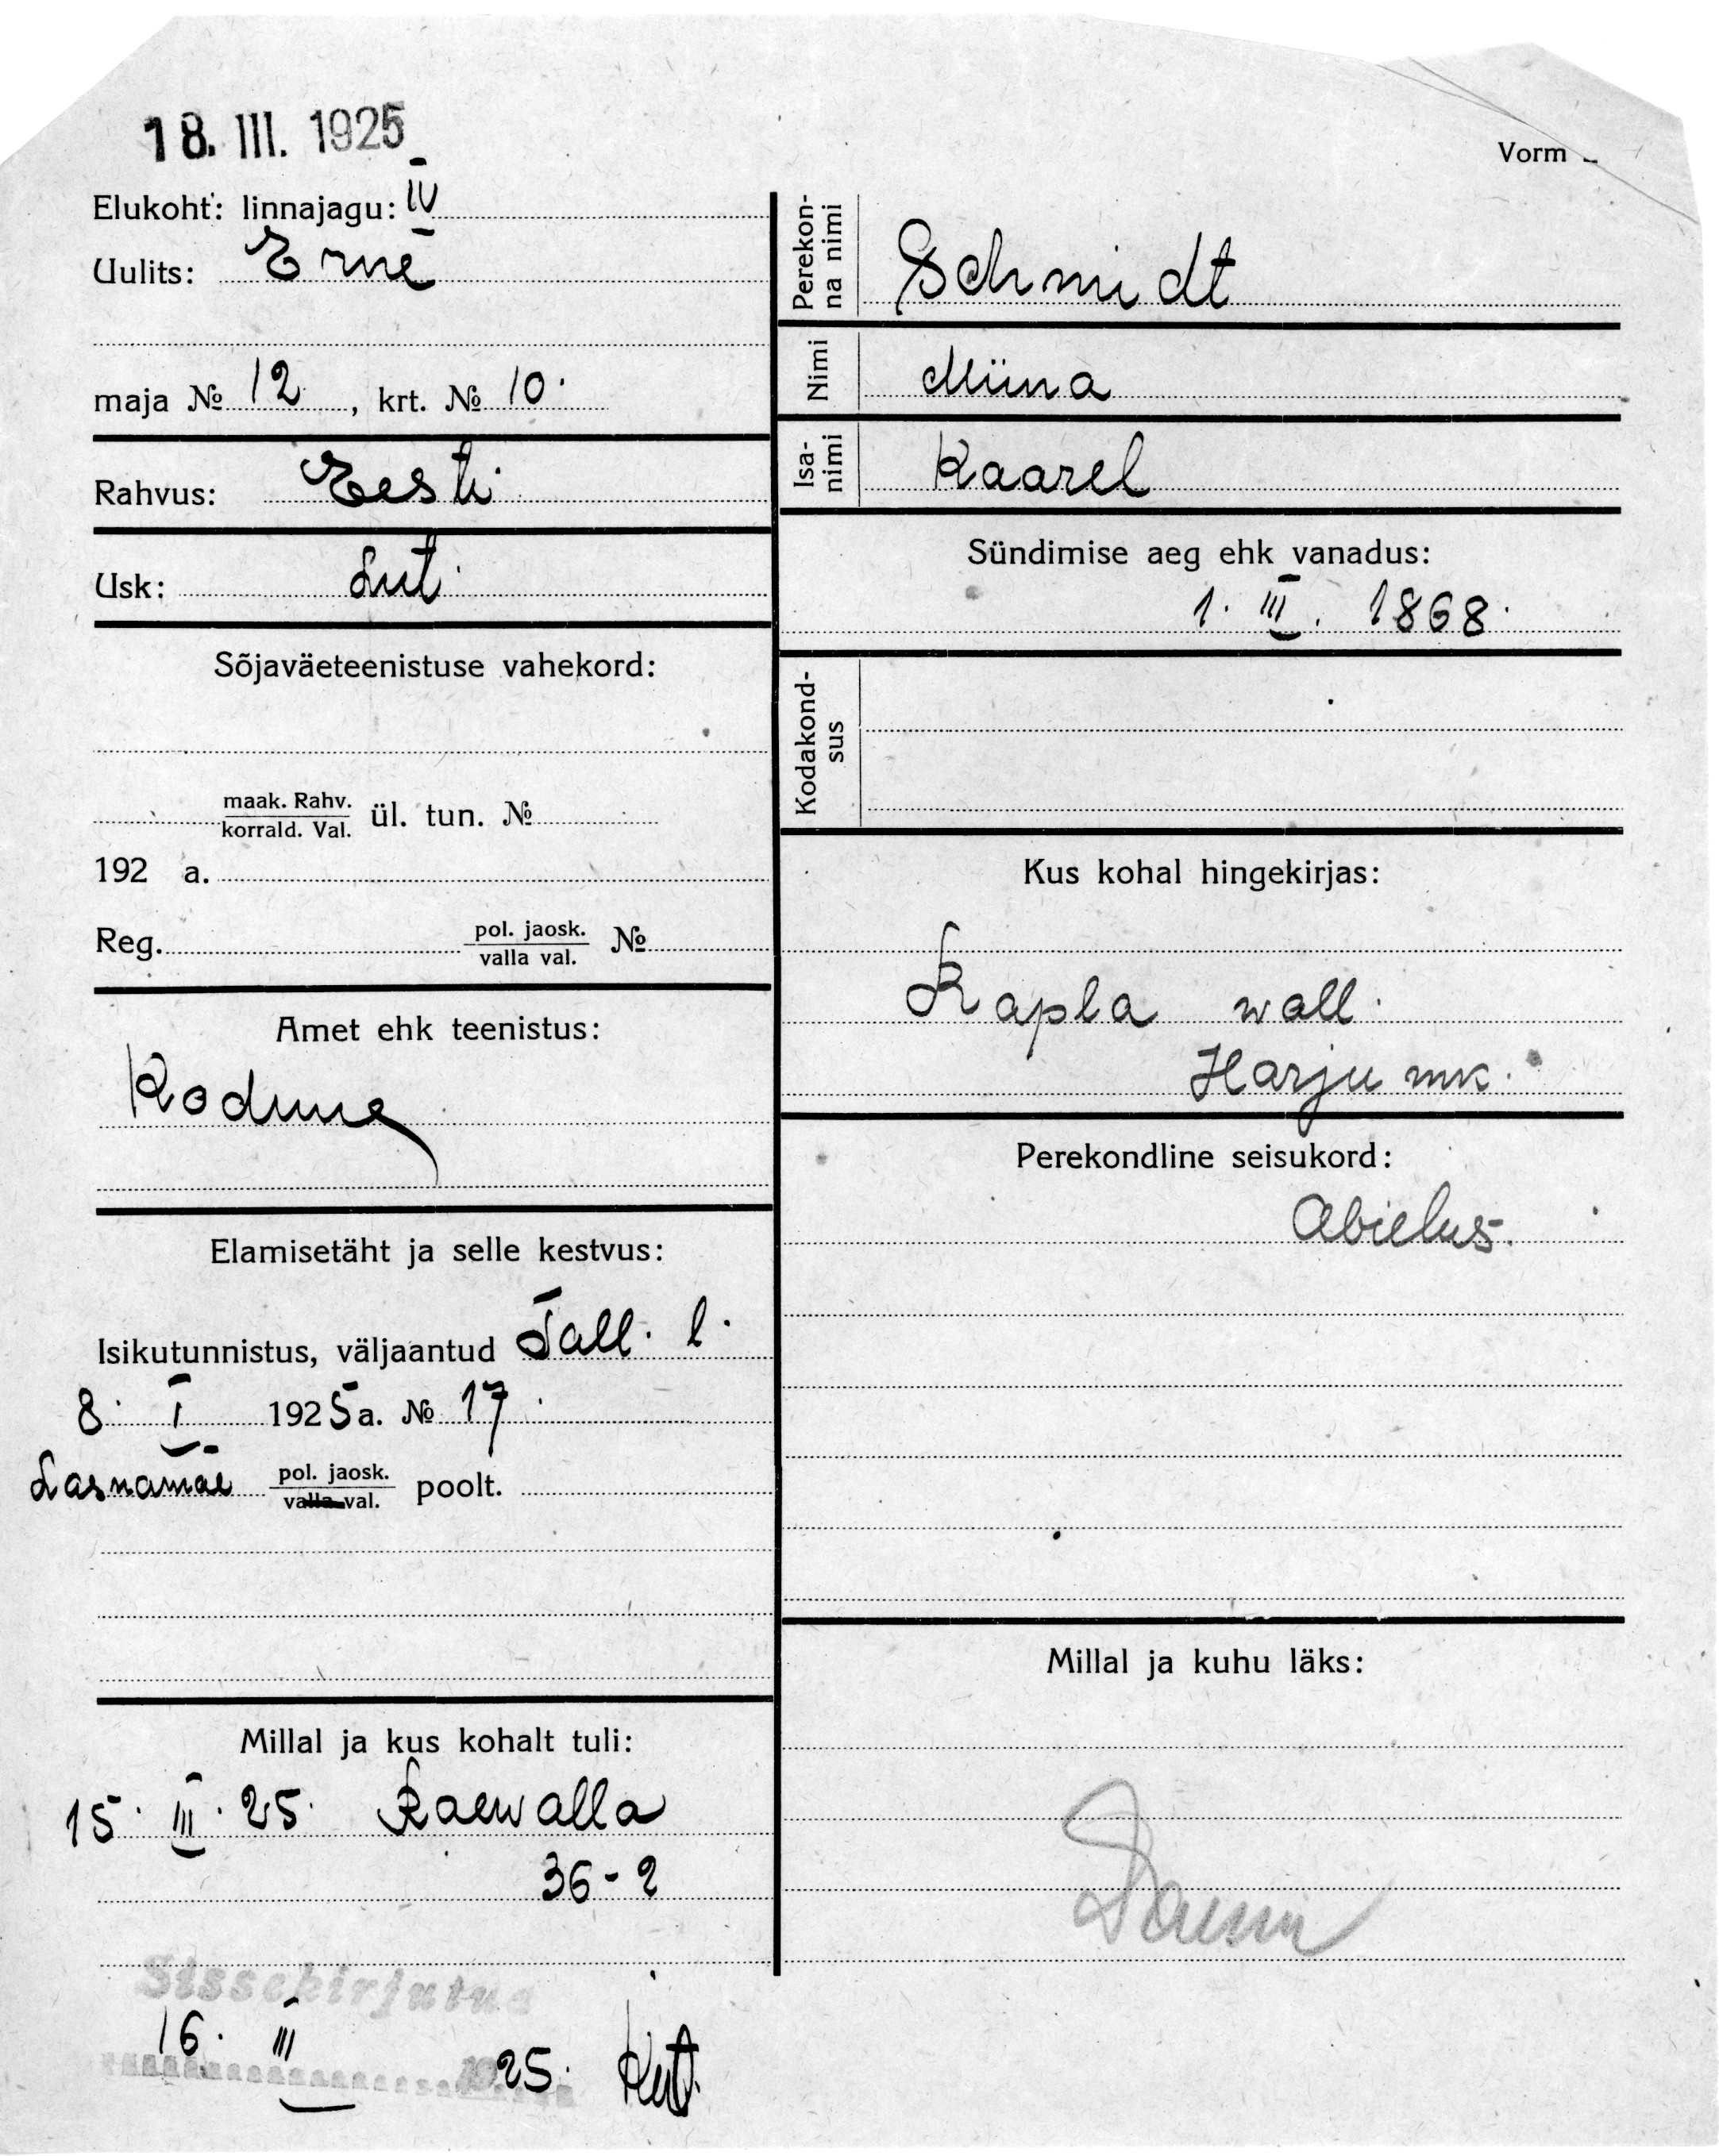 18. III. 1925
Vorm
Elukoht: linnajagu: IV
Uulits: Erne
maja № 12, krt. № 10.
Rahvus: Eesti
Usk: Lut.
Sõjaväeteenistuse vahekord:
maak. Rahv.
korrald. Val. ül. tun. №
192 a.
Reg. pol. jaosk. №
valla val.
Amet ehk teenistus:
Kodune
Elamisetäht ja selle kestvus:
Isikutunnistus, väljaantud Tall. l.
8. I 1925 a. № 17.
Lasnamäe pol. jaosk. poolt.
valla val.
Millal ja kus kohalt tuli:
15. III. 25. Raewalla
36-2
Sissekirjutud
16. III 1925.
Perekon-
na nimi
Schmidt
Nimi
Miina
Isa-
nimi
Kaarel
Sündimise aeg ehk vanadus:
1. III. 1868.
Kodakond-
sus
Kus kohal hingekirjas:
Rapla wall.
Harju mk.
Perekondline seisukord:
Abielus.
Millal ja kuhu läks: